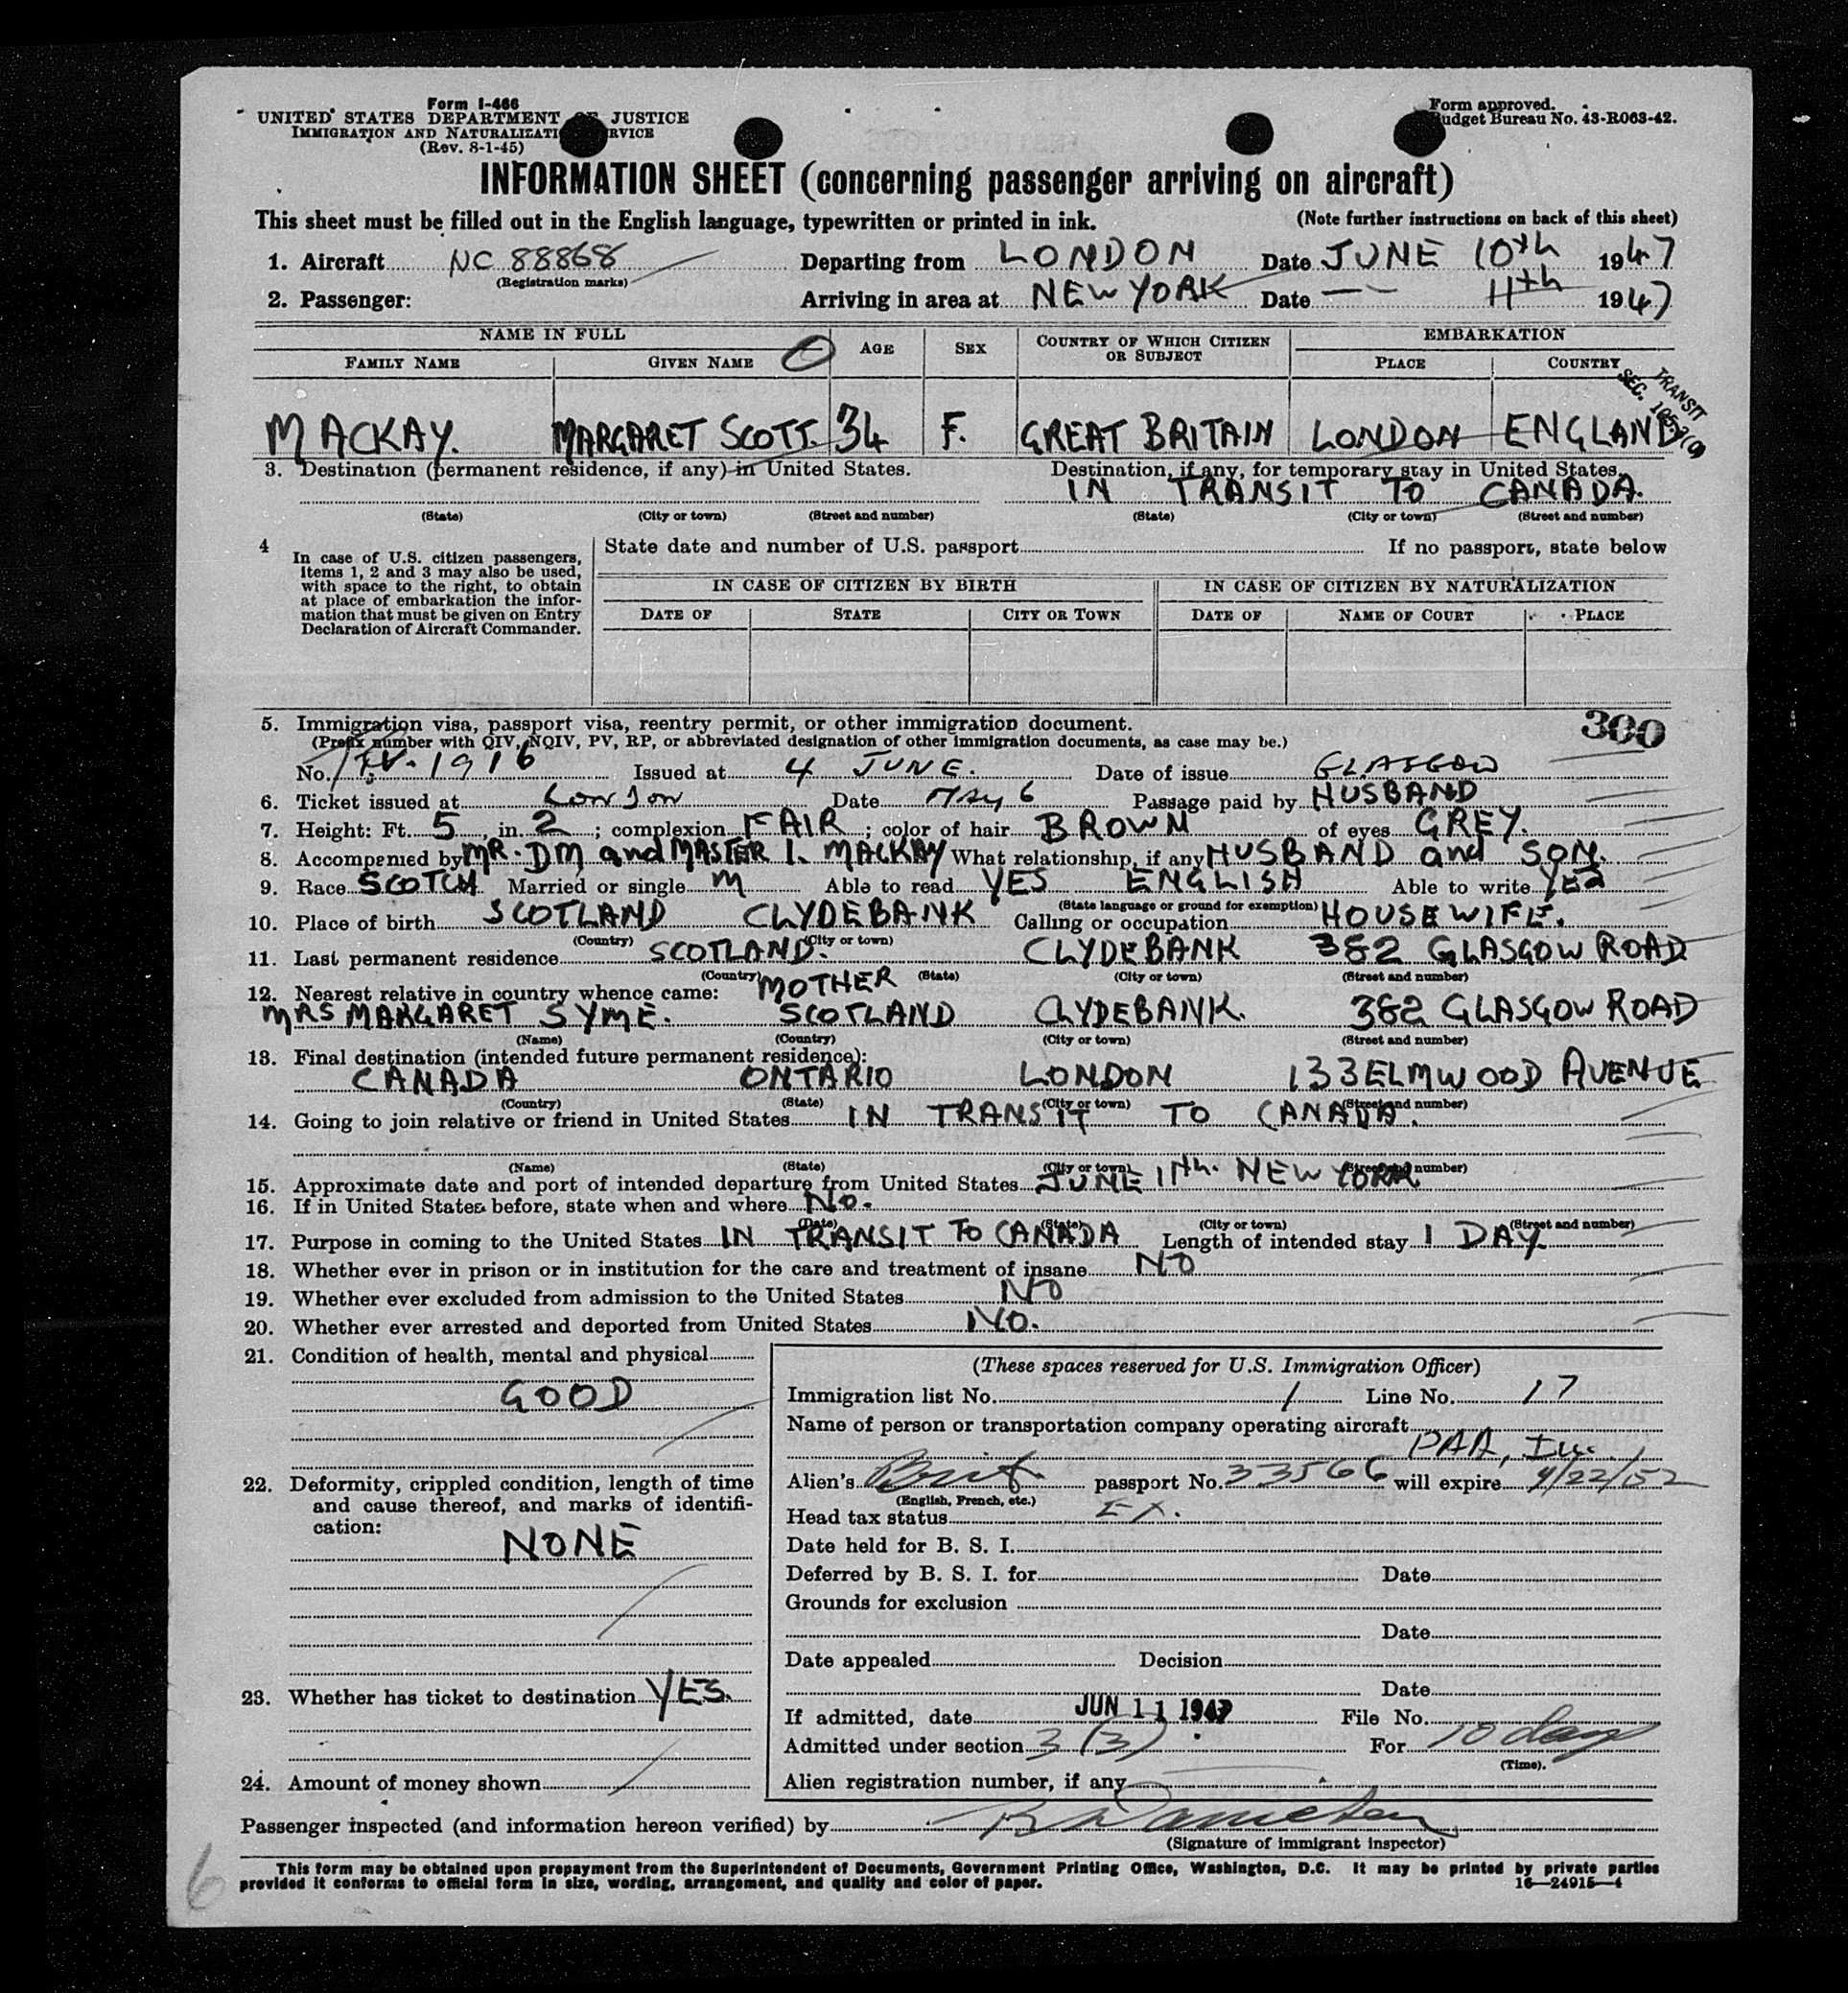 Form I-466
UNITED STATES DEPARTMENT OF JUSTICE
IMMIGRATION AND NATURALIZATION SERVICE
(Rev. 8-1-45)
Form approved.
Budget Bureau No. 43-R063-42.
INFORMATION SHEET (concerning passenger arriving on aircraft)
This sheet must be filled out in the English language, typewritten or printed in ink. (Note further instructions on back of this sheet)
1. Aircraft NC 88868 Departing from LONDON Date JUNE 10th 1947
(Registration marks)
2. Passenger: Arriving in area at NEW YORK Date — — 11th 1947
NAME IN FULL AGE SEX COUNTRY OF WHICH CITIZEN OR SUBJECT EMBARKATION
FAMILY NAME GIVEN NAME PLACE COUNTRY
TRANSIT
SEC.
MACKAY. MARGARET SCOTT. 34 F. GREAT BRITAIN LONDON ENGLAND
3. Destination (permanent residence, if any) in United States. Destination, if any, for temporary stay in United States.
IN TRANSIT TO CANADA.
(State) (City or town) (Street and number) (State) (City or town) (Street and number)
4 In case of U.S. citizen passengers, items 1, 2 and 3 may also be used, with space to the right, to obtain at place of embarkation the information that must be given on Entry Declaration of Aircraft Commander.
State date and number of U.S. passport If no passport, state below
IN CASE OF CITIZEN BY BIRTH IN CASE OF CITIZEN BY NATURALIZATION
DATE OF STATE CITY OR TOWN DATE OF NAME OF COURT PLACE
5. Immigration visa, passport visa, reentry permit, or other immigration document. 300
(Prefix number with QIV, NQIV, PV, RP, or abbreviated designation of other immigration documents, as case may be.)
No. 1916 Issued at 4 JUNE. Date of issue GLASGOW
6. Ticket issued at London Date May 6 Passage paid by HUSBAND
7. Height: Ft. 5, in. 2; complexion FAIR; color of hair BROWN of eyes GREY.
8. Accompanied by MR. DM and MASTER I. MACKAY What relationship, if any HUSBAND and SON.
9. Race SCOTCH Married or single M Able to read YES ENGLISH Able to write Yes
(State language or ground for exemption)
10. Place of birth SCOTLAND CLYDEBANK Calling or occupation HOUSEWIFE.
(Country) (City or town)
11. Last permanent residence SCOTLAND. CLYDEBANK 382 GLASGOW ROAD
(Country) (State) (City or town) (Street and number)
12. Nearest relative in country whence came: MOTHER
MRS MARGARET SYME. SCOTLAND CLYDEBANK. 382 GLASGOW ROAD
(Name) (Country) (City or town) (Street and number)
13. Final destination (intended future permanent residence):
CANADA ONTARIO LONDON 133 ELMWOOD AVENUE
(Country) (State) (City or town) (Street and number)
14. Going to join relative or friend in United States IN TRANSIT TO CANADA.
(Name) (State) (City or town) (Street and number)
15. Approximate date and port of intended departure from United States JUNE 11th. NEW YORK
16. If in United States before, state when and where No.
(Date) (State) (City or town) (Street and number)
17. Purpose in coming to the United States IN TRANSIT TO CANADA Length of intended stay 1 DAY
18. Whether ever in prison or in institution for the care and treatment of insane NO
19. Whether ever excluded from admission to the United States NO
20. Whether ever arrested and deported from United States NO.
21. Condition of health, mental and physical
GOOD
22. Deformity, crippled condition, length of time and cause thereof, and marks of identification:
NONE
23. Whether has ticket to destination YES.
24. Amount of money shown
(These spaces reserved for U.S. Immigration Officer)
Immigration list No. 1 Line No. 17
Name of person or transportation company operating aircraft
PAA, Inc.
Alien's Brit. passport No. 33566 will expire 4/22/52
(English, French, etc.)
Head tax status EX.
Date held for B. S. I.
Deferred by B. S. I. for Date
Grounds for exclusion
Date
Date appealed Decision
Date
If admitted, date JUN 11 1947 File No.
Admitted under section 3 (3) For 10 days
(Time).
Alien registration number, if any
Passenger inspected (and information hereon verified) by
(Signature of immigrant inspector)
6
This form may be obtained upon prepayment from the Superintendent of Documents, Government Printing Office, Washington, D.C. It may be printed by private parties
provided it conforms to official form in size, wording, arrangement, and quality and color of paper. 16—24915-4